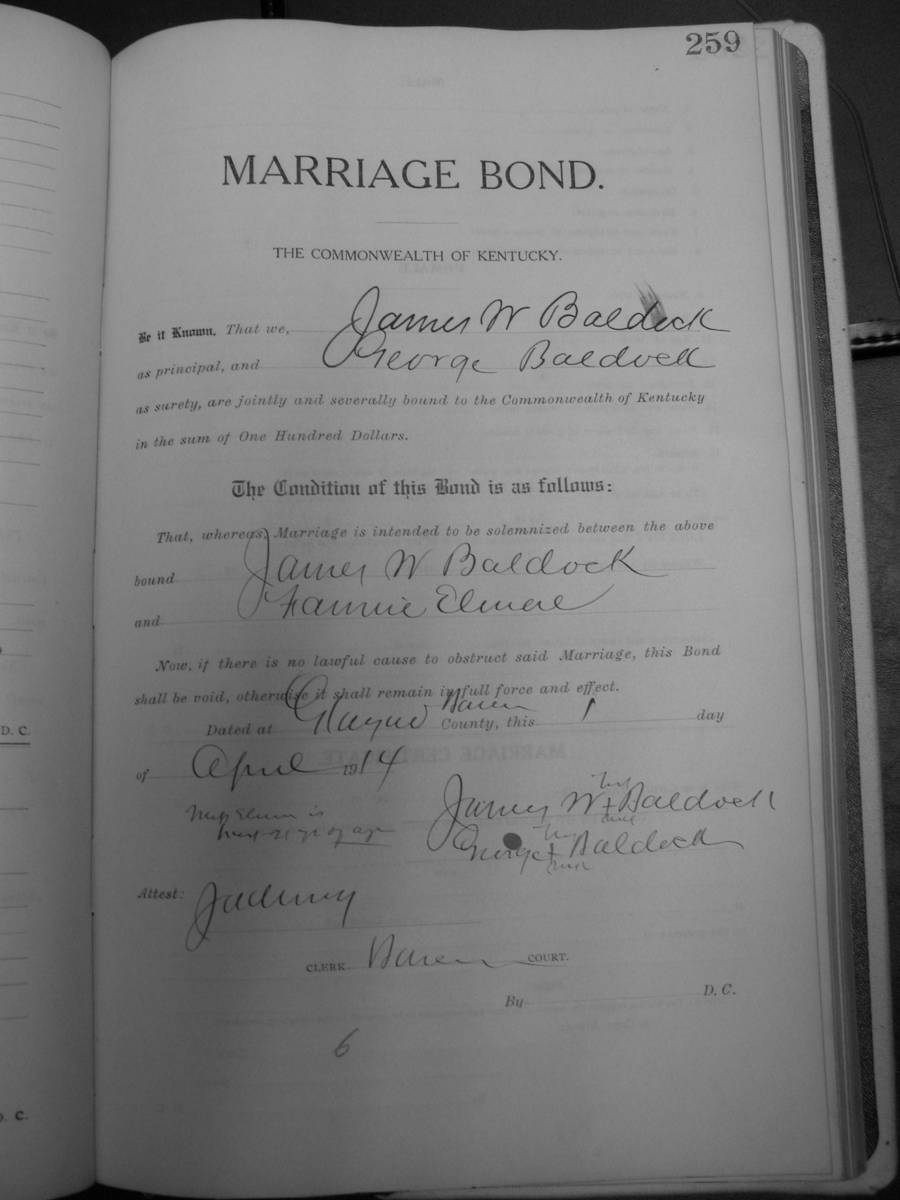 259
MARRIAGE BOND.
THE COMMONWEALTH OF KENTUCKY.
Be it Known, That we, James W Baldock
as principal, and George Baldock
as surety, are jointly and severally bound to the Commonwealth of Kentucky
in the sum of One Hundred Dollars.
The Condition of this Bond is as follows:
That, whereas, Marriage is intended to be solemnized between the above
bound James W Baldock
and Fannie Elmore
Now, if there is no lawful cause to obstruct said Marriage, this Bond
shall be void, otherwise it shall remain in full force and effect.
Dated at Barren County, this 1 day
of April 1914
his
James W + Baldock
mark
his
George + Baldock
mark
is
of age
Attest:
CLERK Barren COURT.
By D. C.
6
D. C.
D. C.